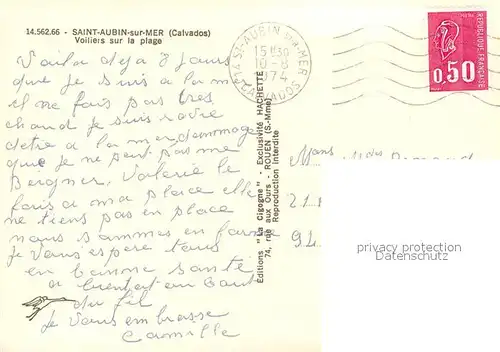 14.562.66 - SAINT-AUBIN-sur-MER (Calvados)
Voiliers sur la plage
Voila deja 8 jours
que je suis a la m
il ne fais pas tres
chaud je suis ravie
detre a la mer dommage
que je ne peut pas me
Beigner, Valerie le
fais a ma place elle
ne tiens pas en place
nous sommes en forme
je vous espere tous
en bonne santé
a bientot un bout
du fil
Je vous embrasse
Camille
Editions "La Cigogne" - Exclusivité HACHETTE
74, rue aux Ours - ROUEN (S.-Mme)
Reproduction Interdite
14 ST-AUBIN S-MER
15H30
10-8
1974
CALVADOS
REPUBLIQUE FRANÇAISE
0,50
21
94
privacy protection
Datenschutz